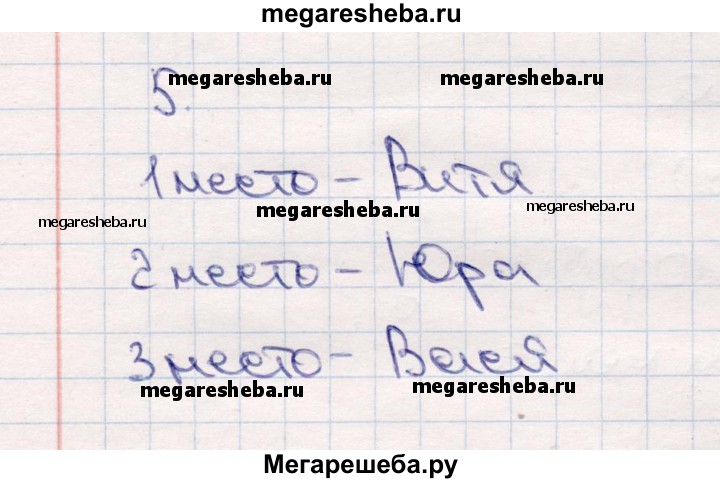 megaresheba.ru
5.
megaresheba.ru megaresheba.ru
1 место - Витя
megaresheba.ru megaresheba.ru megaresheba.ru
2 место - Юра
3 место - Вася
megaresheba.ru megaresheba.ru
Мегарешеба.ру